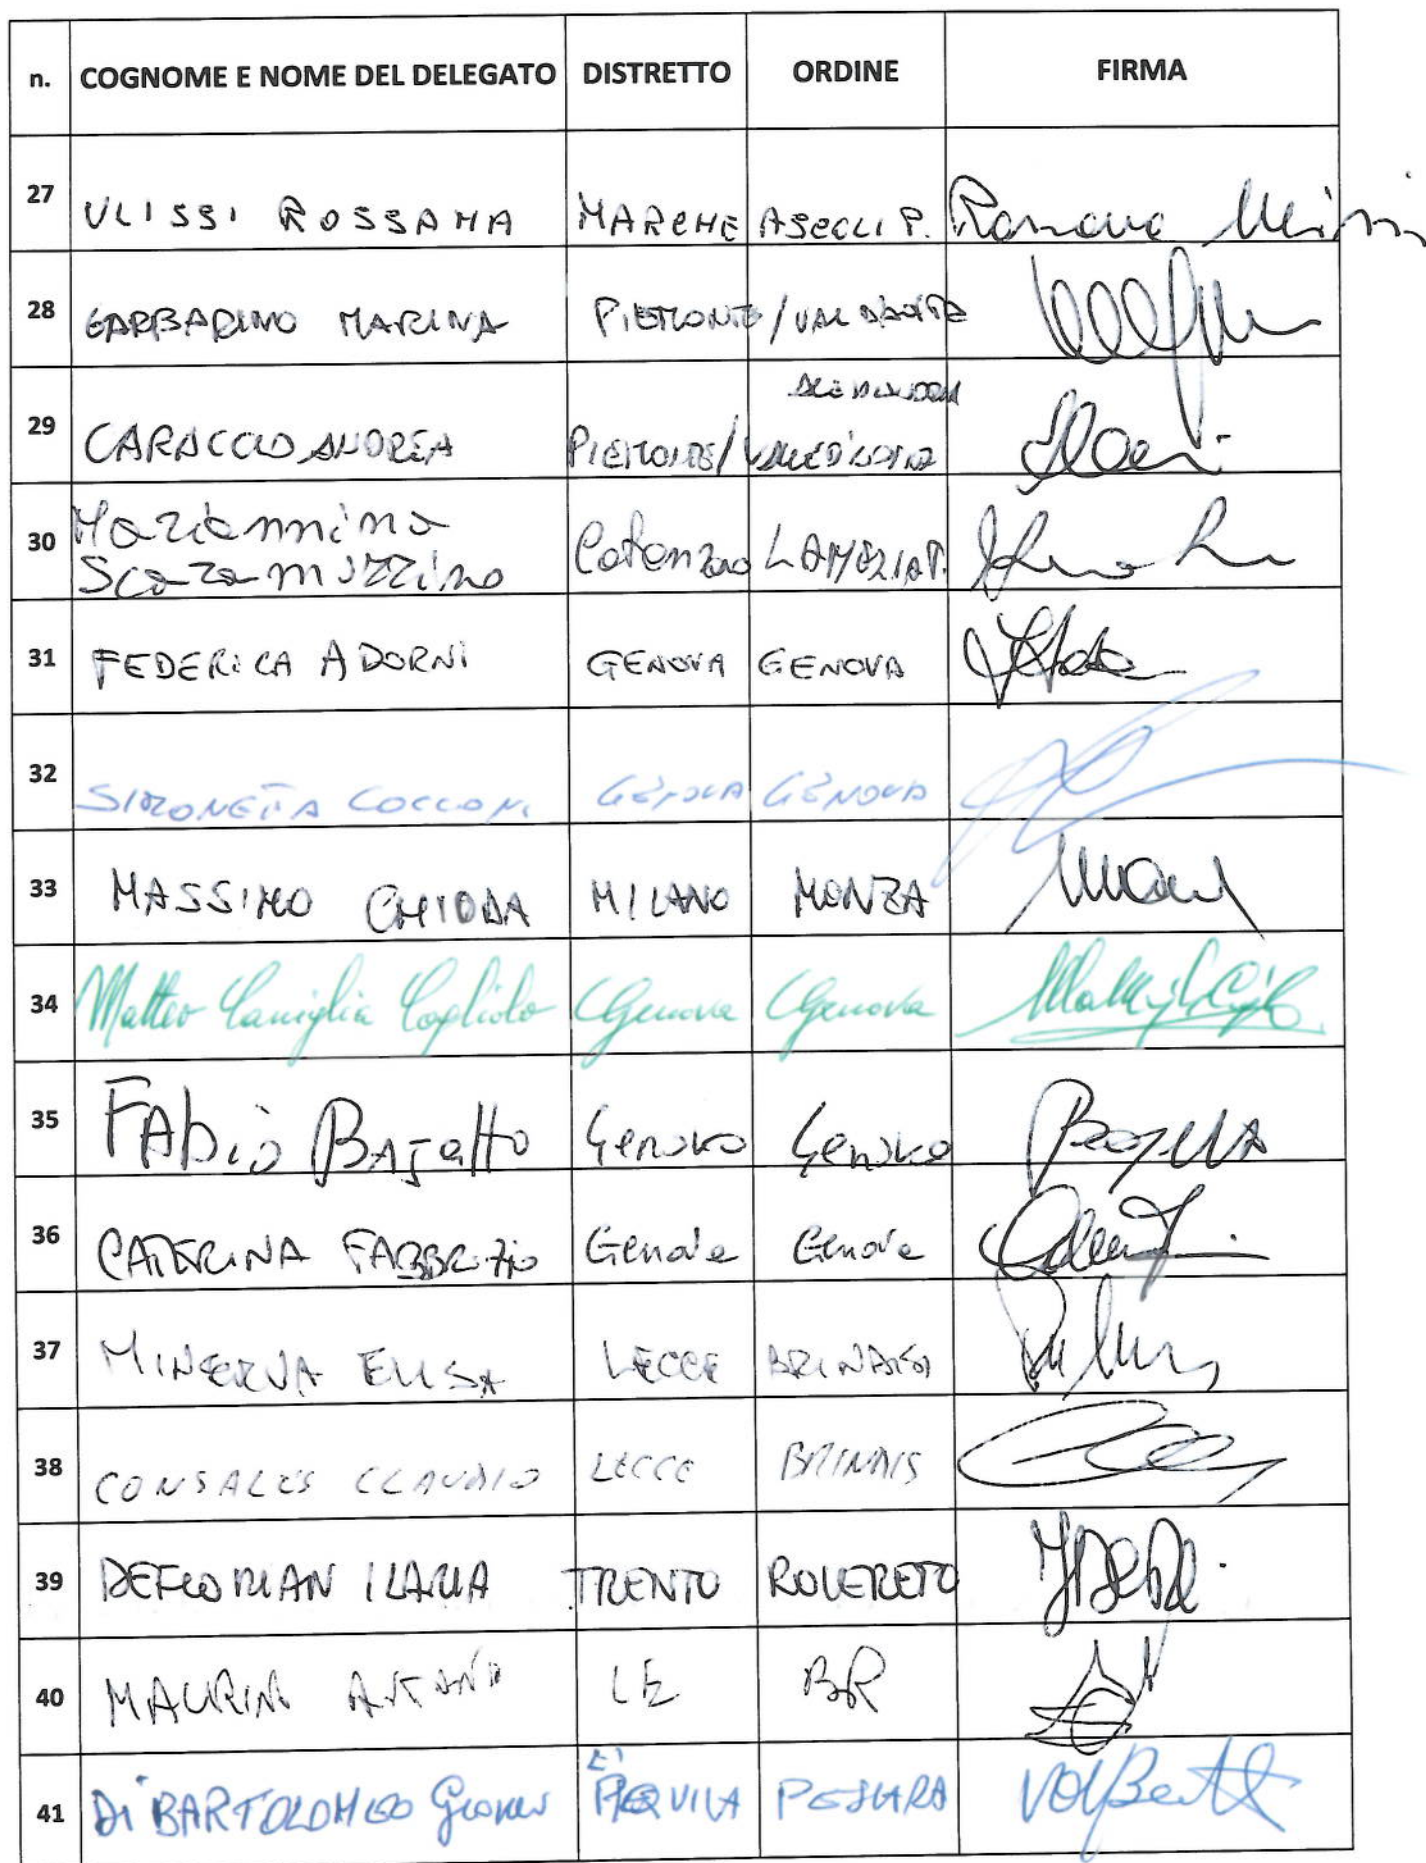 n. COGNOME E NOME DEL DELEGATO DISTRETTO ORDINE FIRMA
27 ULISSI ROSSANA MARCHE ASCOLI P. Rossana Ulissi
28 GARBARINO MARINA PIEMONTE / VAL D'AOSTA
ALESSANDRIA
29 CARACCIOLO ANDREA PIEMONTE / VALLE D'AOSTA
30 Mariannina
Scaramuzzino Catanzaro LAMEZIA T.
31 FEDERICA ADORNI GENOVA GENOVA
32 SIMONETTA COCCONI GENOVA GENOVA
33 MASSIMO CHIODA MILANO MONZA
34 Matteo Caniglia Cogliolo Genova Genova
35 FAbio BAJetto Genova Genova
36 CATERINA FABBRIZIO Genova Genova
37 MINERVA ELISA LECCE BRINDISI
38 CONSALES CLAUDIO LECCE BRINDISI
39 DEFLORIAN ILARIA TRENTO ROVERETO
40 MAURINI LE BR
41 Di BARTOLOMEO L'AQUILA PESCARA